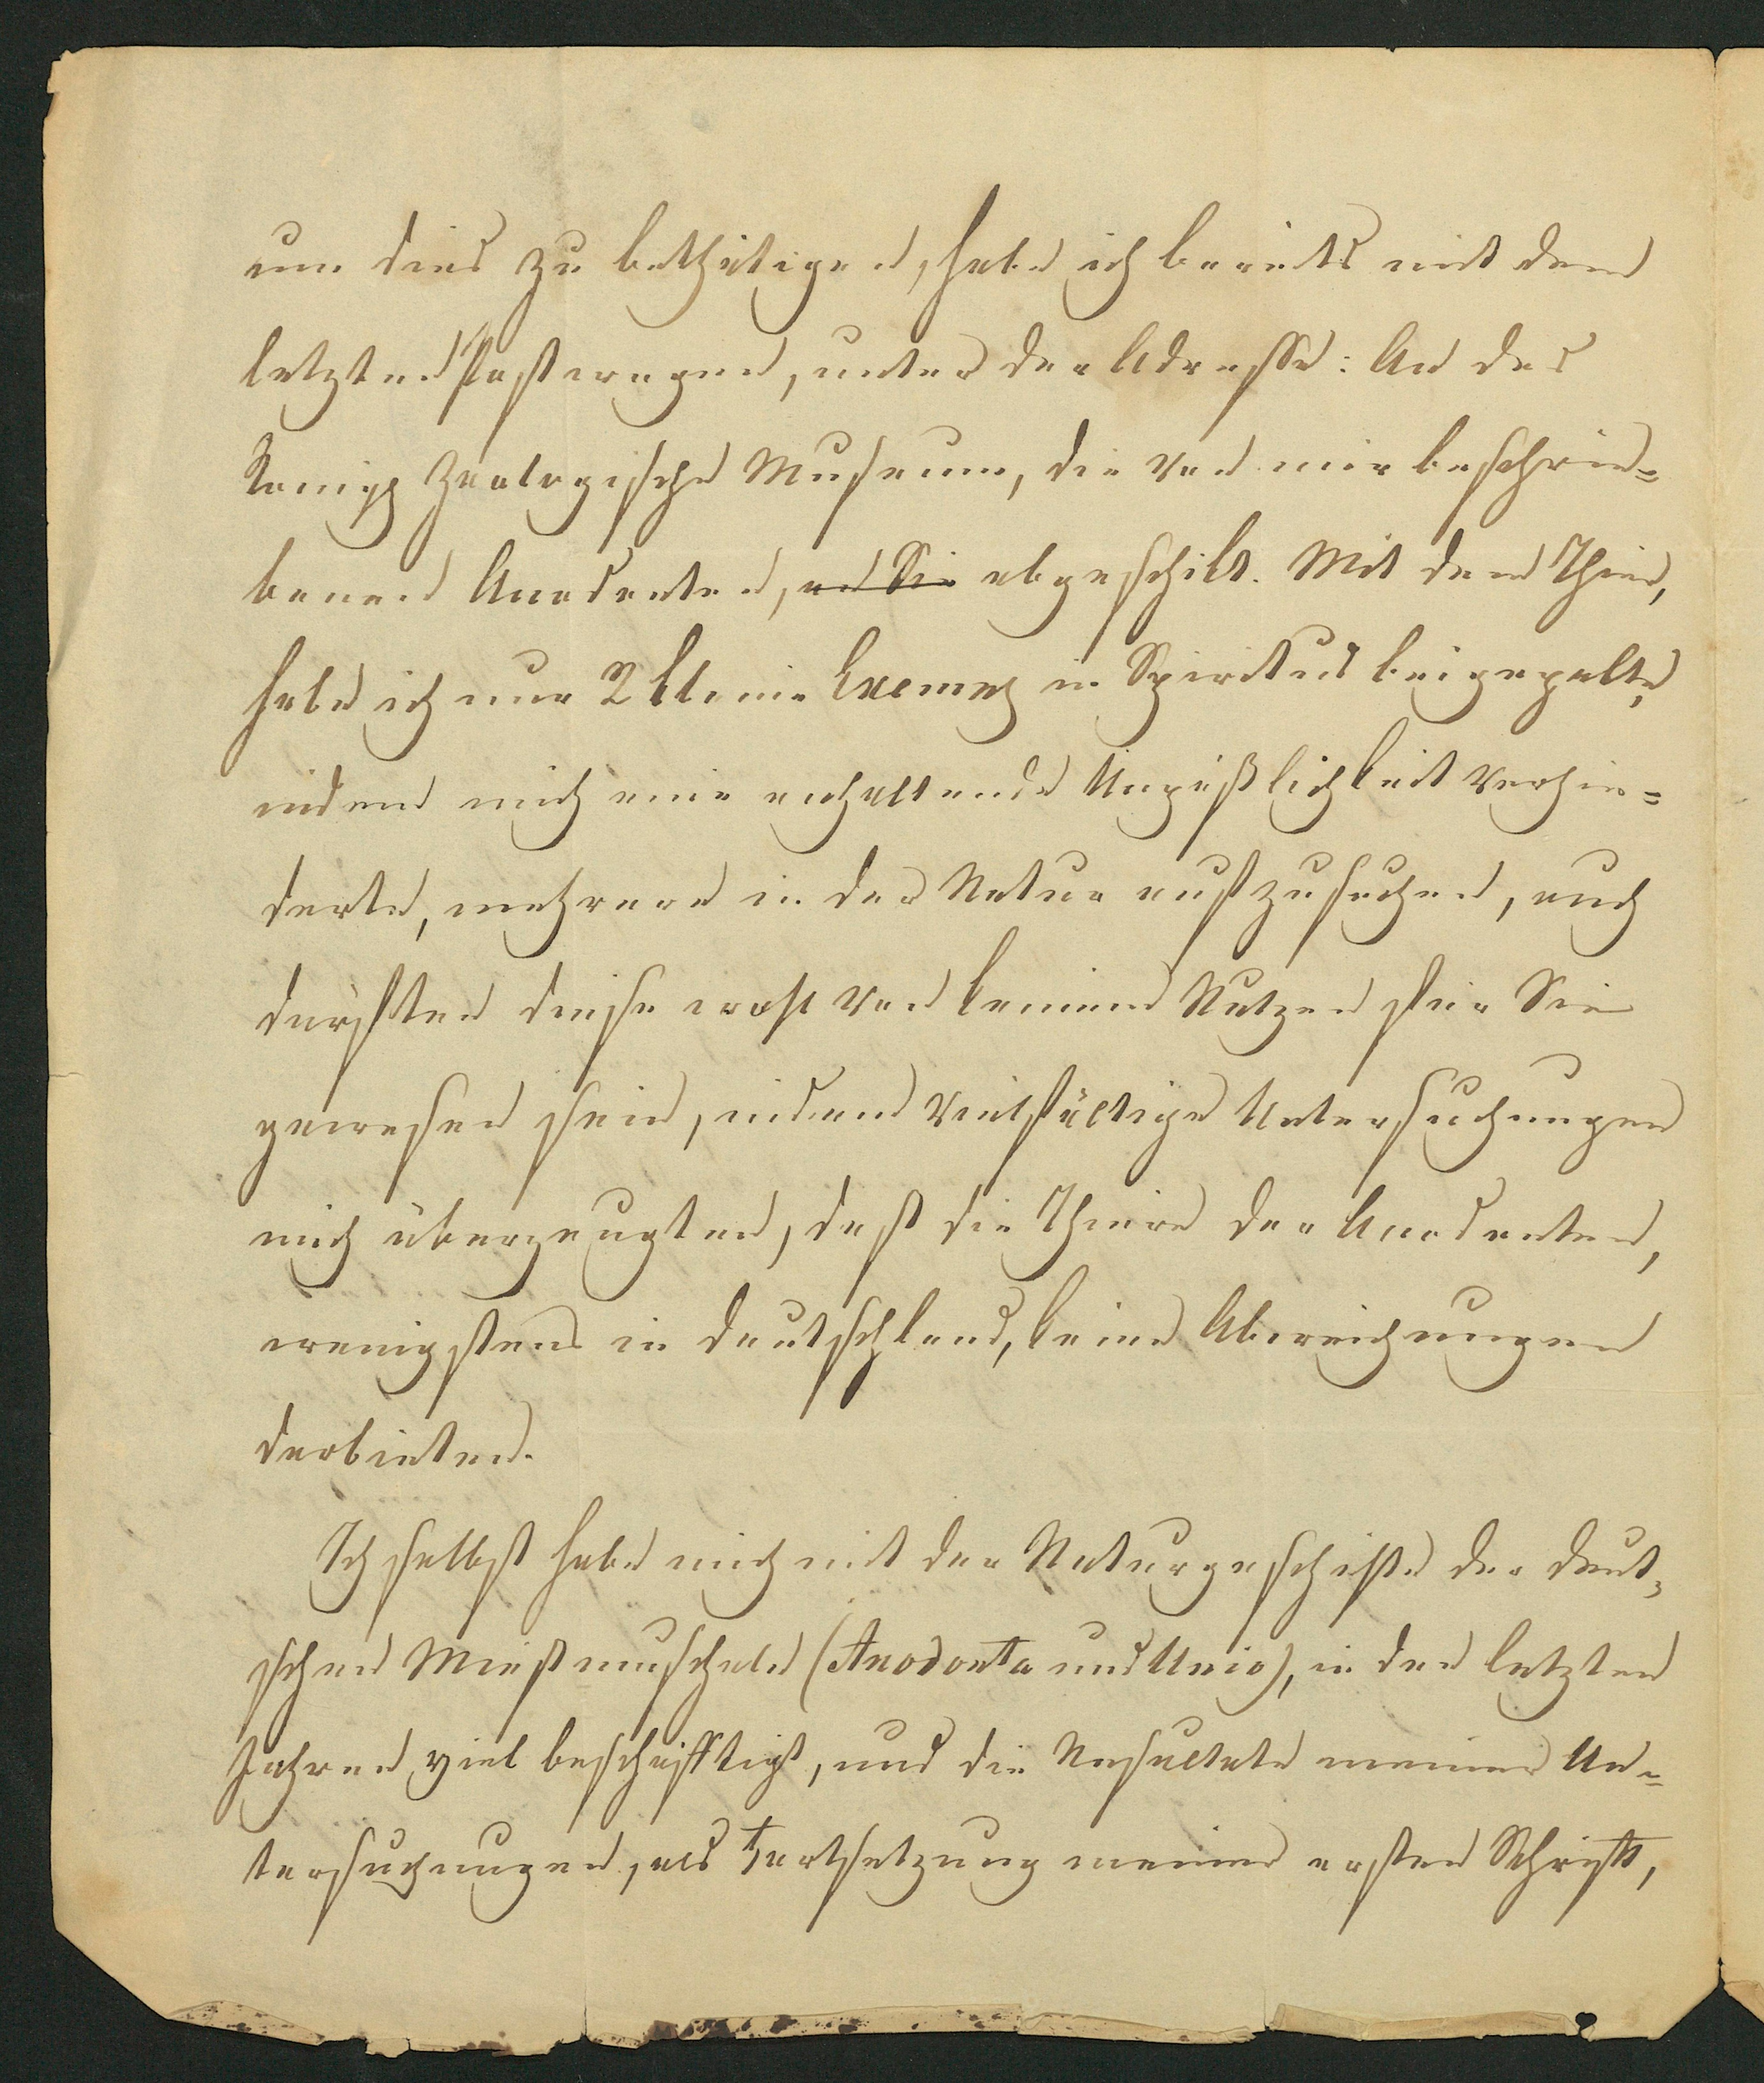 um dies zu bethätigen, habe ich bereits mit dem
letzten Postwagen, unter der Adresse: An das
Königl Zoologische Museum, die von mir beschrie=
benen Anodonten, an Sie abgeschikt. Mit dem Thier,
habe ich nur 2 kleine Exempl in Spiritus beigepakt,
indem mich eine anhaltende Unpäßlichkeit verhin=
derte, mehrere in der Natur aufzusuchen, auch
dürften diese wohl von keinem Nutzen für Sie
gewesen sein, indem vielfältige Untersuchungen
mich überzeugten, daß die Thiere der Anodonten,
wenigstens in Deutschland, keine Abweichungen
darbieten.
Ich selbst habe mich mit der Naturgeschichte der deut=
schen Miesmuscheln (Anodonta und Unio), in den letzten
Jahren viel beschäfftigt, und die Resultate meiner Un=
tersuchungen, als Fortsetzung meiner ersten Schrift,